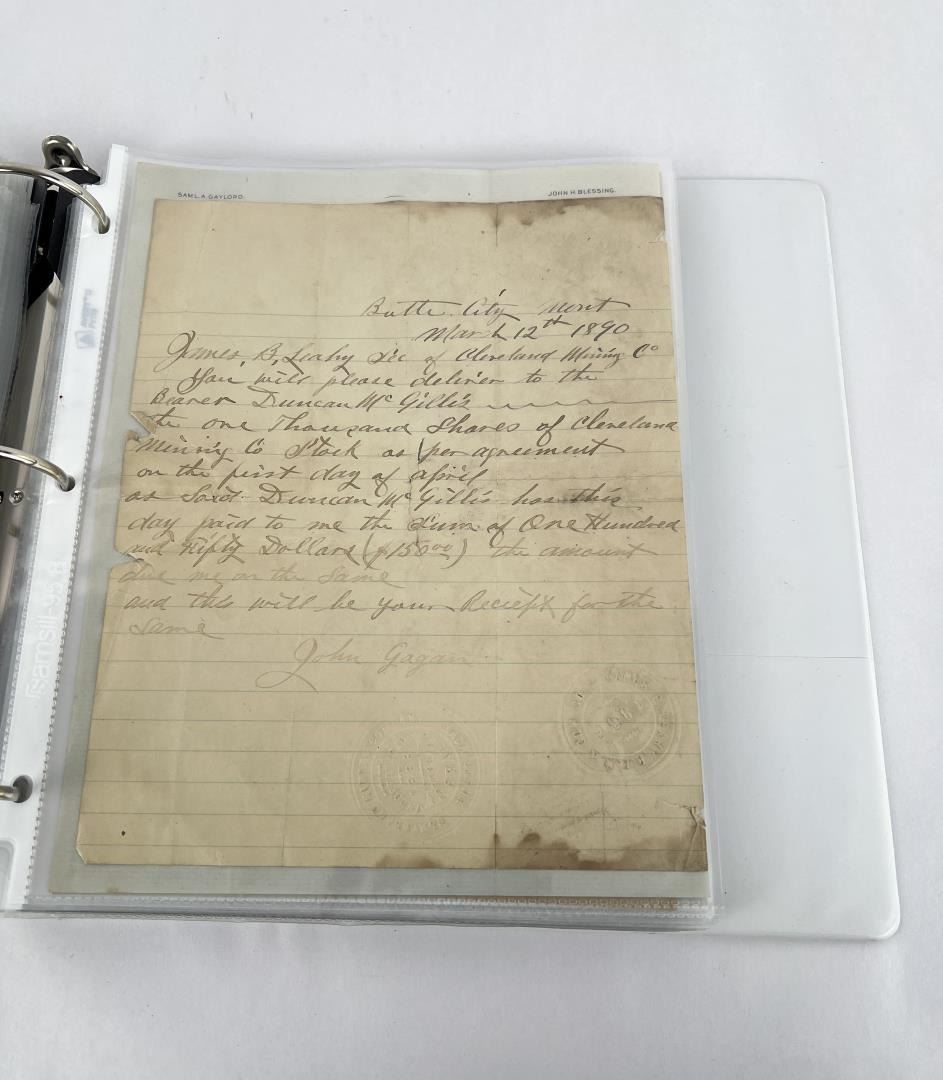 SAML. A. GAYLORD. JOHN H. BLESSING.
Butte City Mont
March 12th 1890
James B. Leahy Sec of Cleveland Mining Co
You will please deliver to the
Bearer Duncan McGillis
te one Thousand Shares of Cleveland
Mining Co Stock as per agreement
on the first day of april
as Said Duncan McGillis has this
day paid to me the Sum of One Hundred
and Fifty Dollars ($150.00) the amount
due me on the Same
and this will be your Reciept for the
Same
John Gagan
samsill